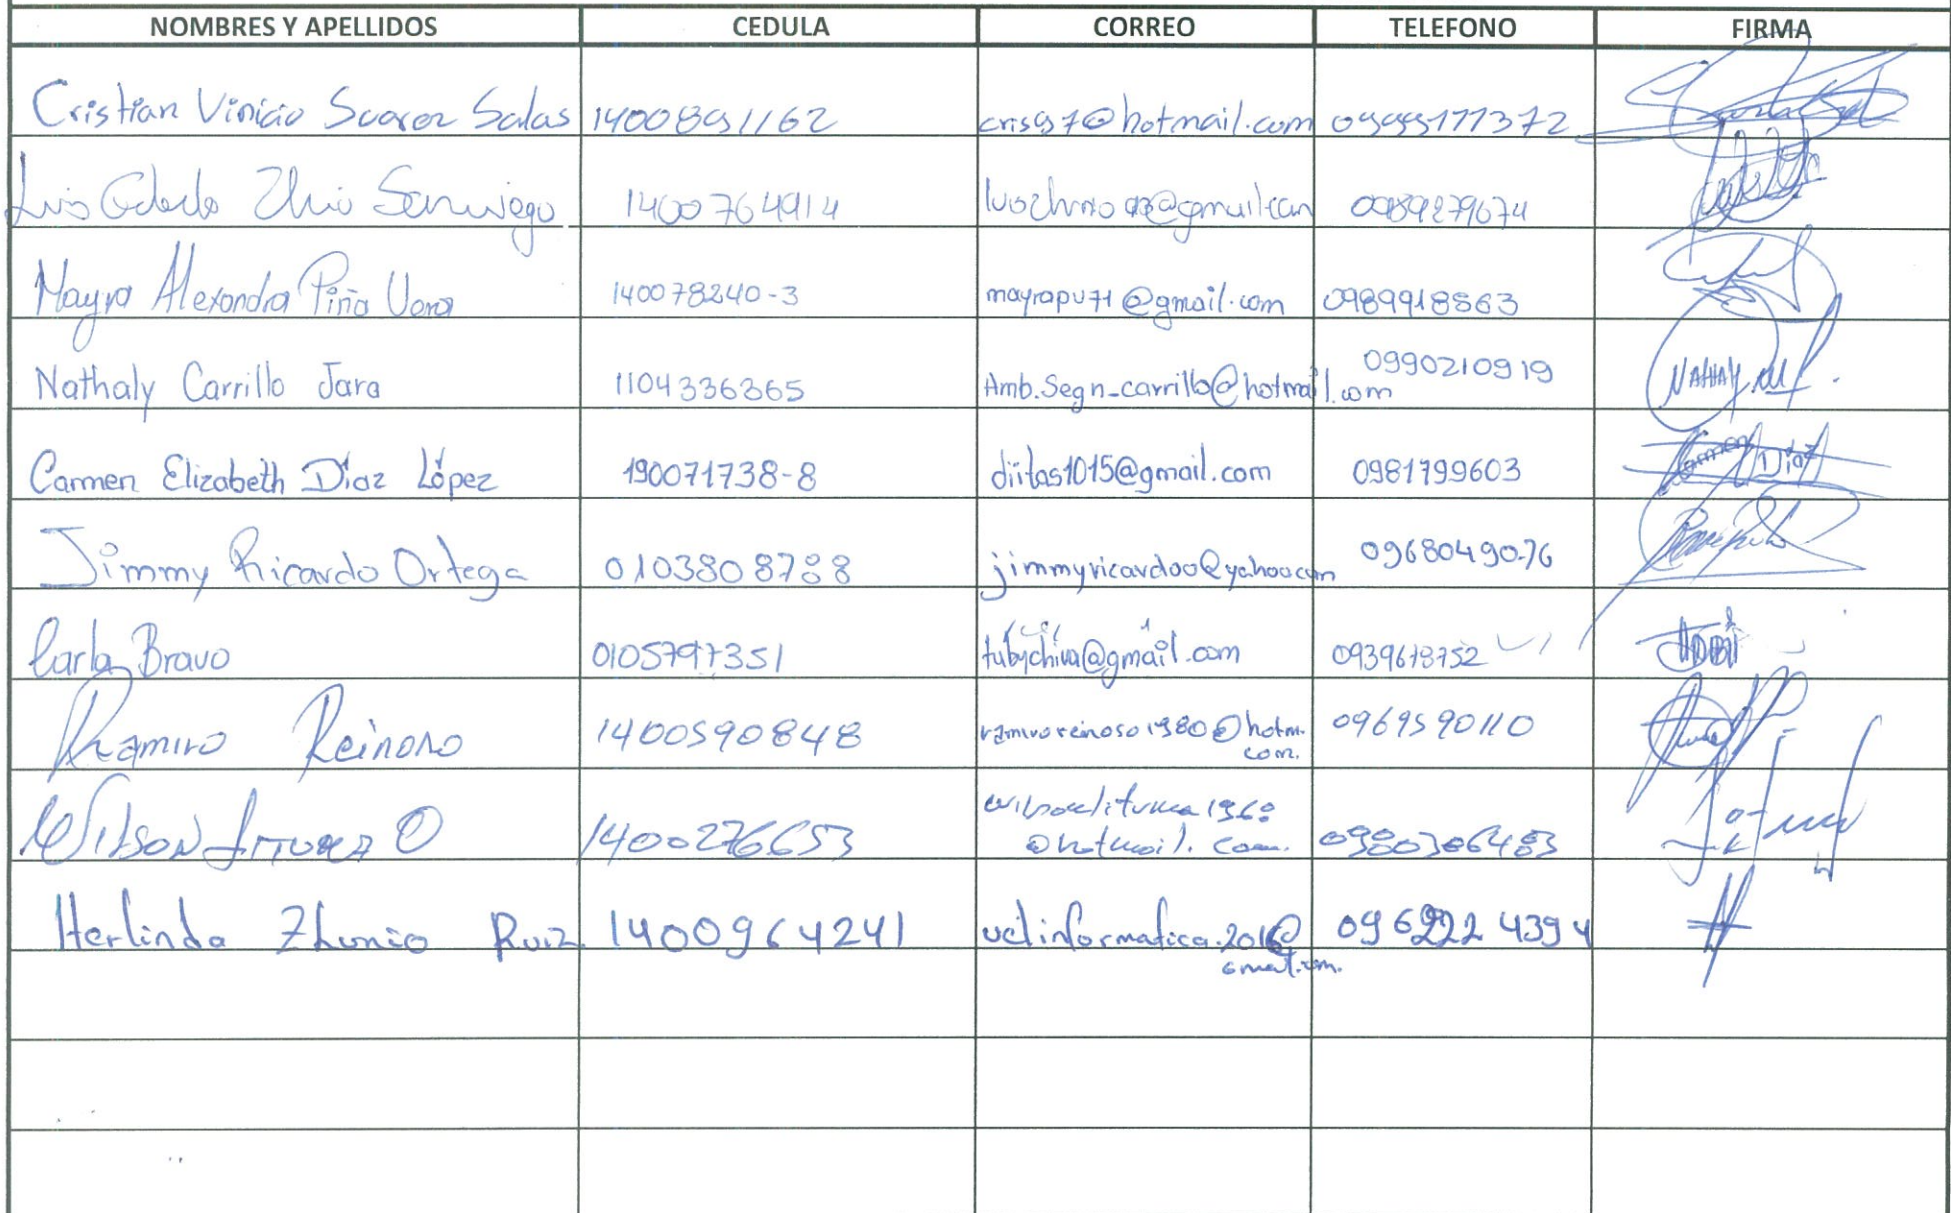 NOMBRES Y APELLIDOS CEDULA CORREO TELEFONO FIRMA
Cristian Vinicio Suarez Salas 1400891162 cris97@hotmail.com 0999177372
Luis 1400764914 0989279674
Mayra Alexandra Piña Vera 140078240-3 mayrapv71@gmail.com 0989918563
Nathaly Carrillo Jara 1104336365 Amb.Segn_carrillo@hotmail.com 0990210919
Carmen Elizabeth Díaz López 190071738-8 diitas1015@gmail.com 0981799603 Carmen Díaz
Jimmy Ricardo Ortega 0103808788 jimmyricardoo@yahoo.com 0968049076
Carla Bravo 0105797351 tubychiva@gmail.com 0939678752
Ramiro Reinoso 1400590848 ramiroreinoso1980@hotm. 0969590110
com.
Wilson Lituma O 1400276653 wilsonlituma1968
@hotmail.com. 0980306483
Herlinda Zhunio Ruiz 1400964241 informatica.2016@ 0962224394
gmail.com.